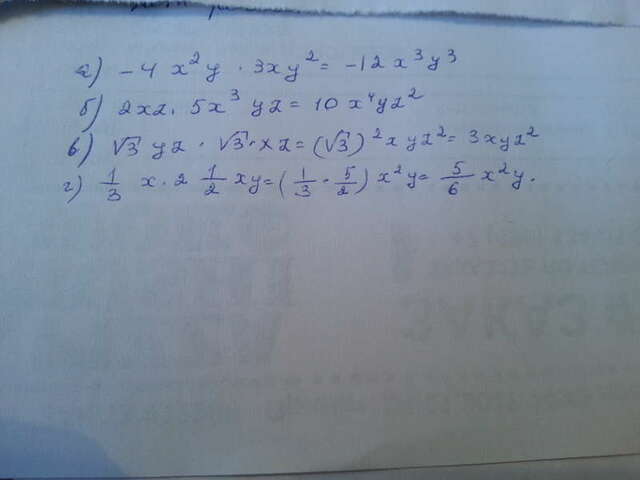 а) -4 x²y · 3xy² = -12x³y³
б) 2xz · 5x³yz = 10x⁴yz²
в) √3 yz · √3 · xz = (√3)²xyz² = 3xyz²
г) 1/3 x · 2 1/2 xy = (1/3 · 5/2) x²y = 5/6 x²y.